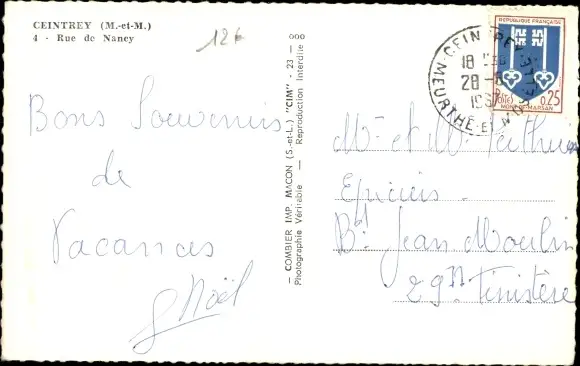 CEINTREY (M.-et-M.)
4 - Rue de Nancy
12 F
Bons Souvenirs
de
Vacances
Noël
— COMBIER IMP. MACON (S.-et-L.) "CIM" - 23 - ooo
Photographie Véritable — Reproduction Interdite
REPUBLIQUE FRANÇAISE
POSTES
0,25
MONT-DE-MARSAN
CEINTREY
18 H30
28 -8
MEURTHE-ET-MOSELLE
Mme et M.
Epiciers
Bd Jean Moulin
29N Finistère